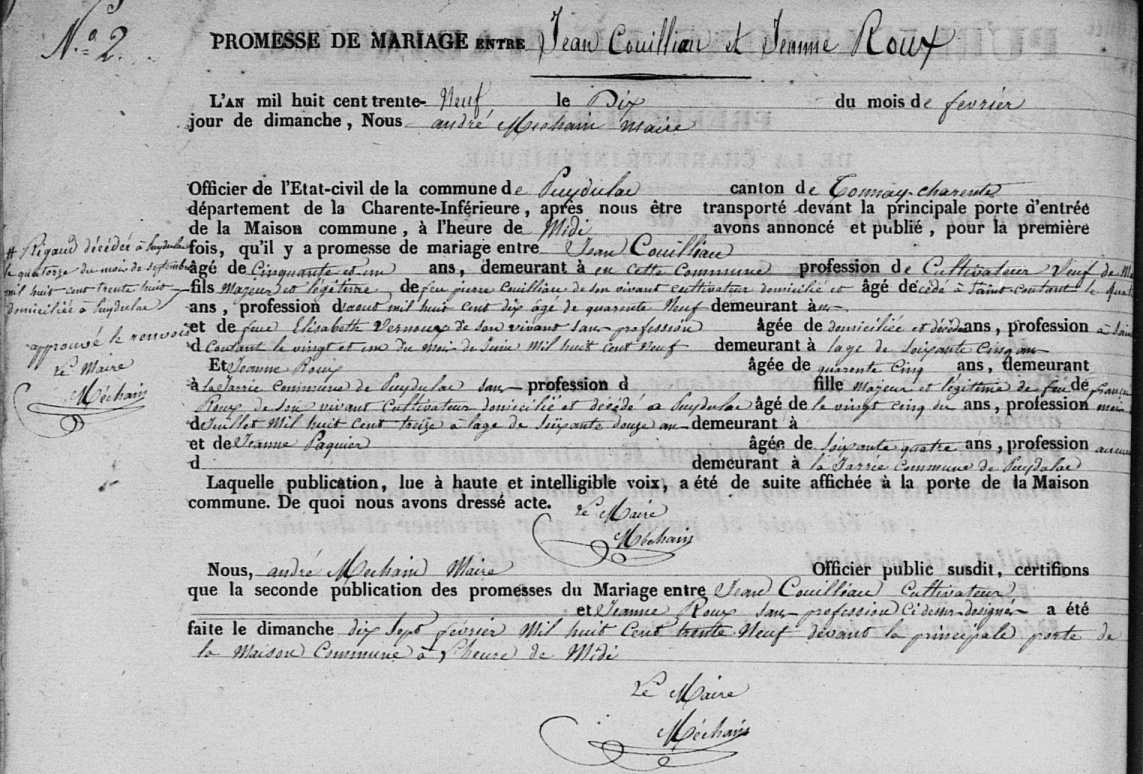 N.º 2.
PROMESSE DE MARIAGE ENTRE Jean Couilliau et Jeanne Roux
L'AN mil huit cent trente- Neuf le Dix du mois de fevrier
jour de dimanche, Nous andré Mechain maire
Officier de l'Etat-civil de la commune de Puydulac canton de Tonnay-charente
département de la Charente-Inférieure, après nous être transporté devant la principale porte d'entrée
de la Maison commune, à l'heure de Midi avons annoncé et publié, pour la première
fois, qu'il y a promesse de mariage entre Jean Couilliau
âgé de Cinquante et un ans, demeurant à en cette Commune profession de Cultivateur Veuf de
fils Majeur et légitime de feu pierre Couilliau de son vivant cultivateur domicilié et âgé decédé à Saint-coutant le
ans, profession d'aout mil huit cent dix âgé de quarante Neuf demeurant à
et de feue Elisabeth Vernoux de son vivant sans profession âgée de domiciliée et décédée ans, profession à Saint
d Coutant le vingt et un du Moi de Juin Mil huit Cent Neuf demeurant à lage de Soixante Cinq an
Et Jeanne Roux âgée de quarente Cinq ans, demeurant
à la Jarrie Commune de Puydulac san profession d fille Majeur et légitime de feu de françois
Roux de son vivant Cultivateur domicilié et décédé a Puydulac âgé de le vingt cinq du ans, profession mois
de Juillet Mil huit Cent treize a lage de Soixante douze an demeurant à
et de Jeanne Paquier âgée de Soixante quatre ans, profession aucune
d demeurant à la Jarrie Commune de Puydulac
Laquelle publication, lue à haute et intelligible voix, a été de suite affichée à la porte de la Maison
commune. De quoi nous avons dressé acte. Le Maire
Méchain
Nous, andré Mechain Maire Officier public susdit, certifions
que la seconde publication des promesses du Mariage entre Jean Couilliau Cultivateur
et Jeanne Roux san profession Ci dessu designé a été
faite le dimanche dix Sept fevrier Mil huit Cent trente Neuf devant la principale porte de
la Maison Commune à l'heure de Midi
Le Maire
Méchain
# Rigaud décédée à Puydulac
le quatorze du mois de septembre
mil huit cent trente huit
domiciliée à Puydulac
approuvé le renvois
Le Maire
Méchain